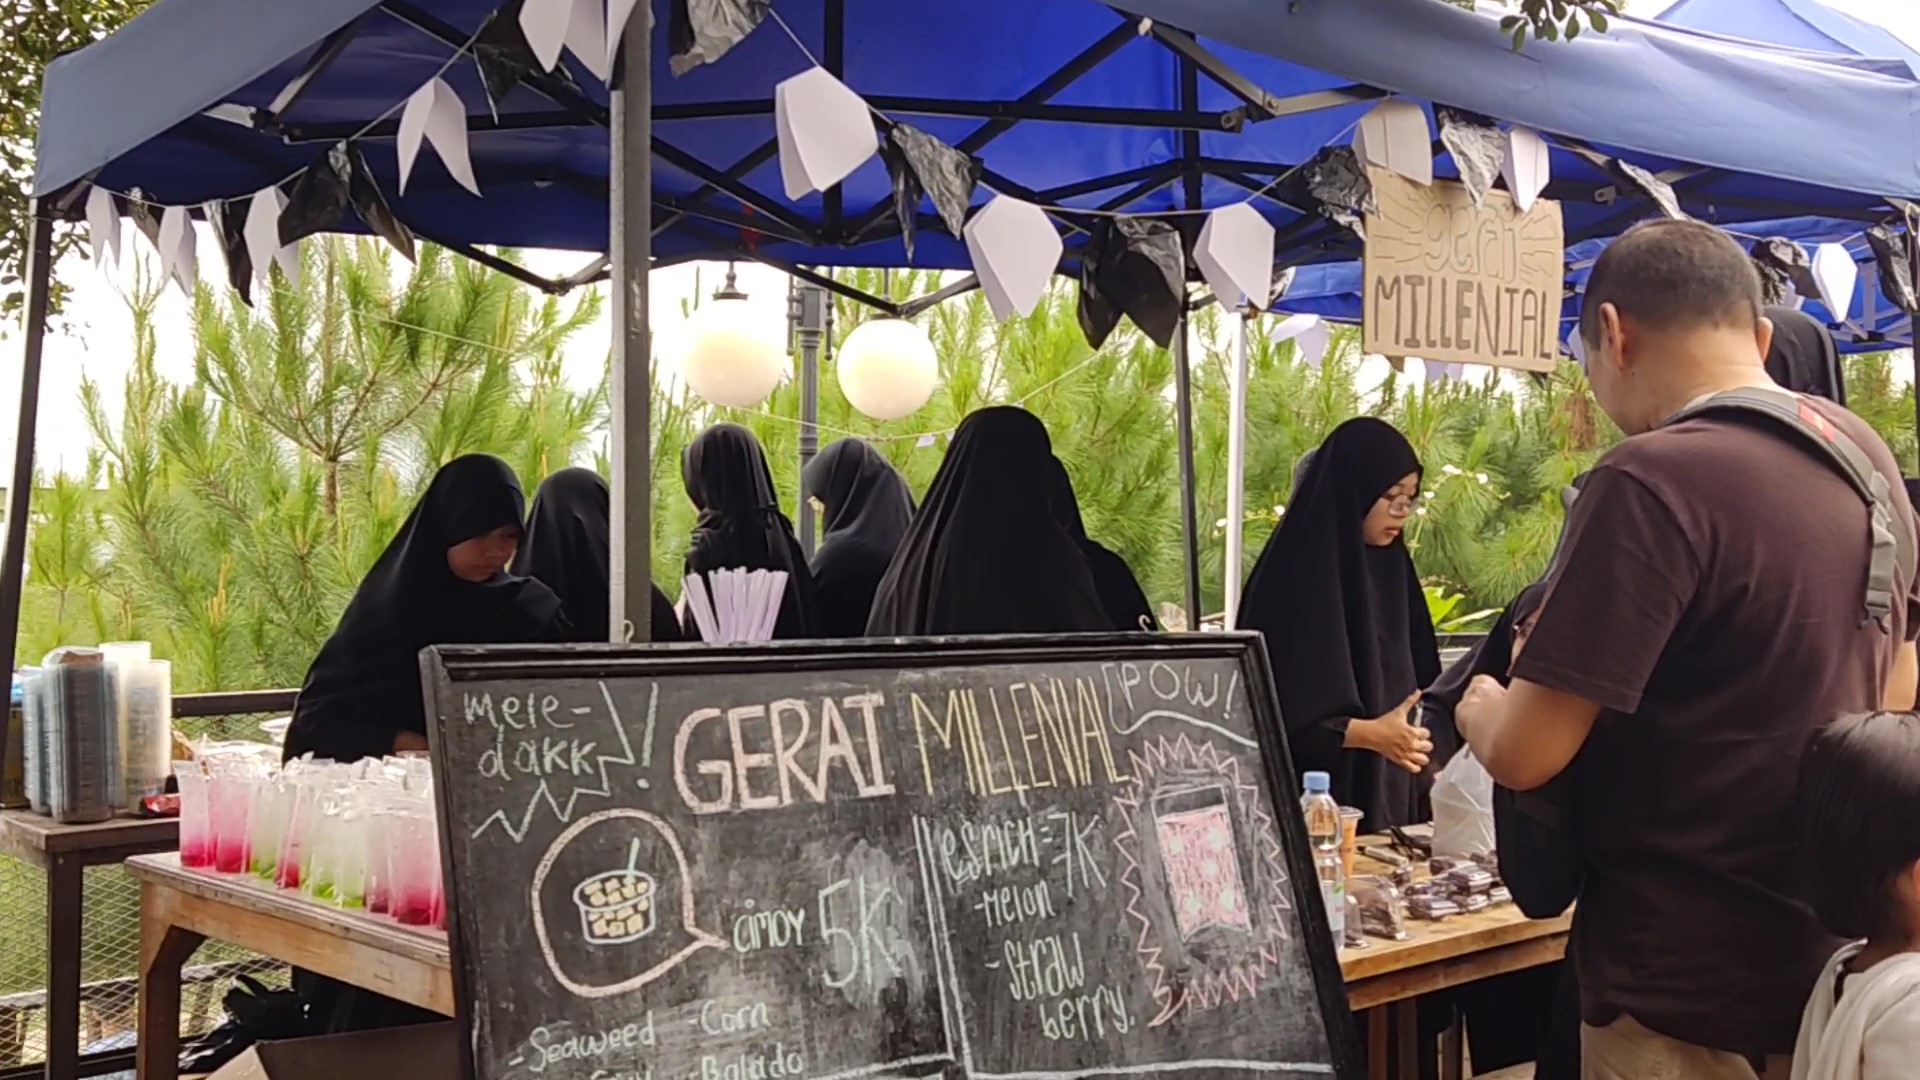 gerai
MILLENIAL
mele-
dakk
!
GERAI MILLENIAL
POW!
cimoy 5K
- Seaweed
- Corn
- Balado
esrich = 7K
- Melon
- Straw
berry.